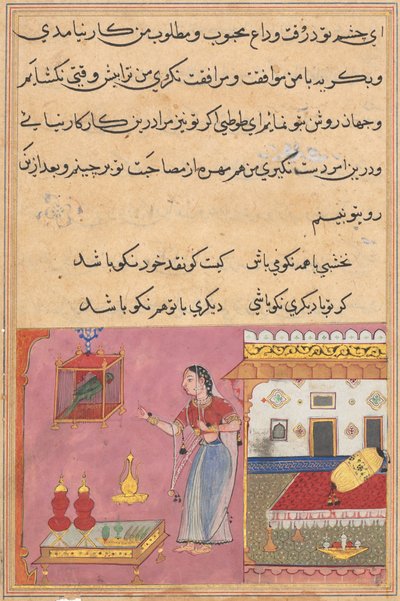 ای چشم تو در وقت وداع محبوب و مطلوب من کار نیامدی
و بکریه با من موافقت و مرافقت نکردی من ترا بیش وقتی نکشایم
و جهان روشن بتو ننمایم ای طوطی اکر تو نیز مرا درین کار کار نیایی
و درین امر دست نکیری من هم مهره از مصاحبت تو برچینم و بعد ازین
روی تو نبینم
نخشبی با همه نکو می باش کیست کو نقد خود نکو باشد
کر تو با دیکری نکو باشی دیکری با تو هم نکو باشد